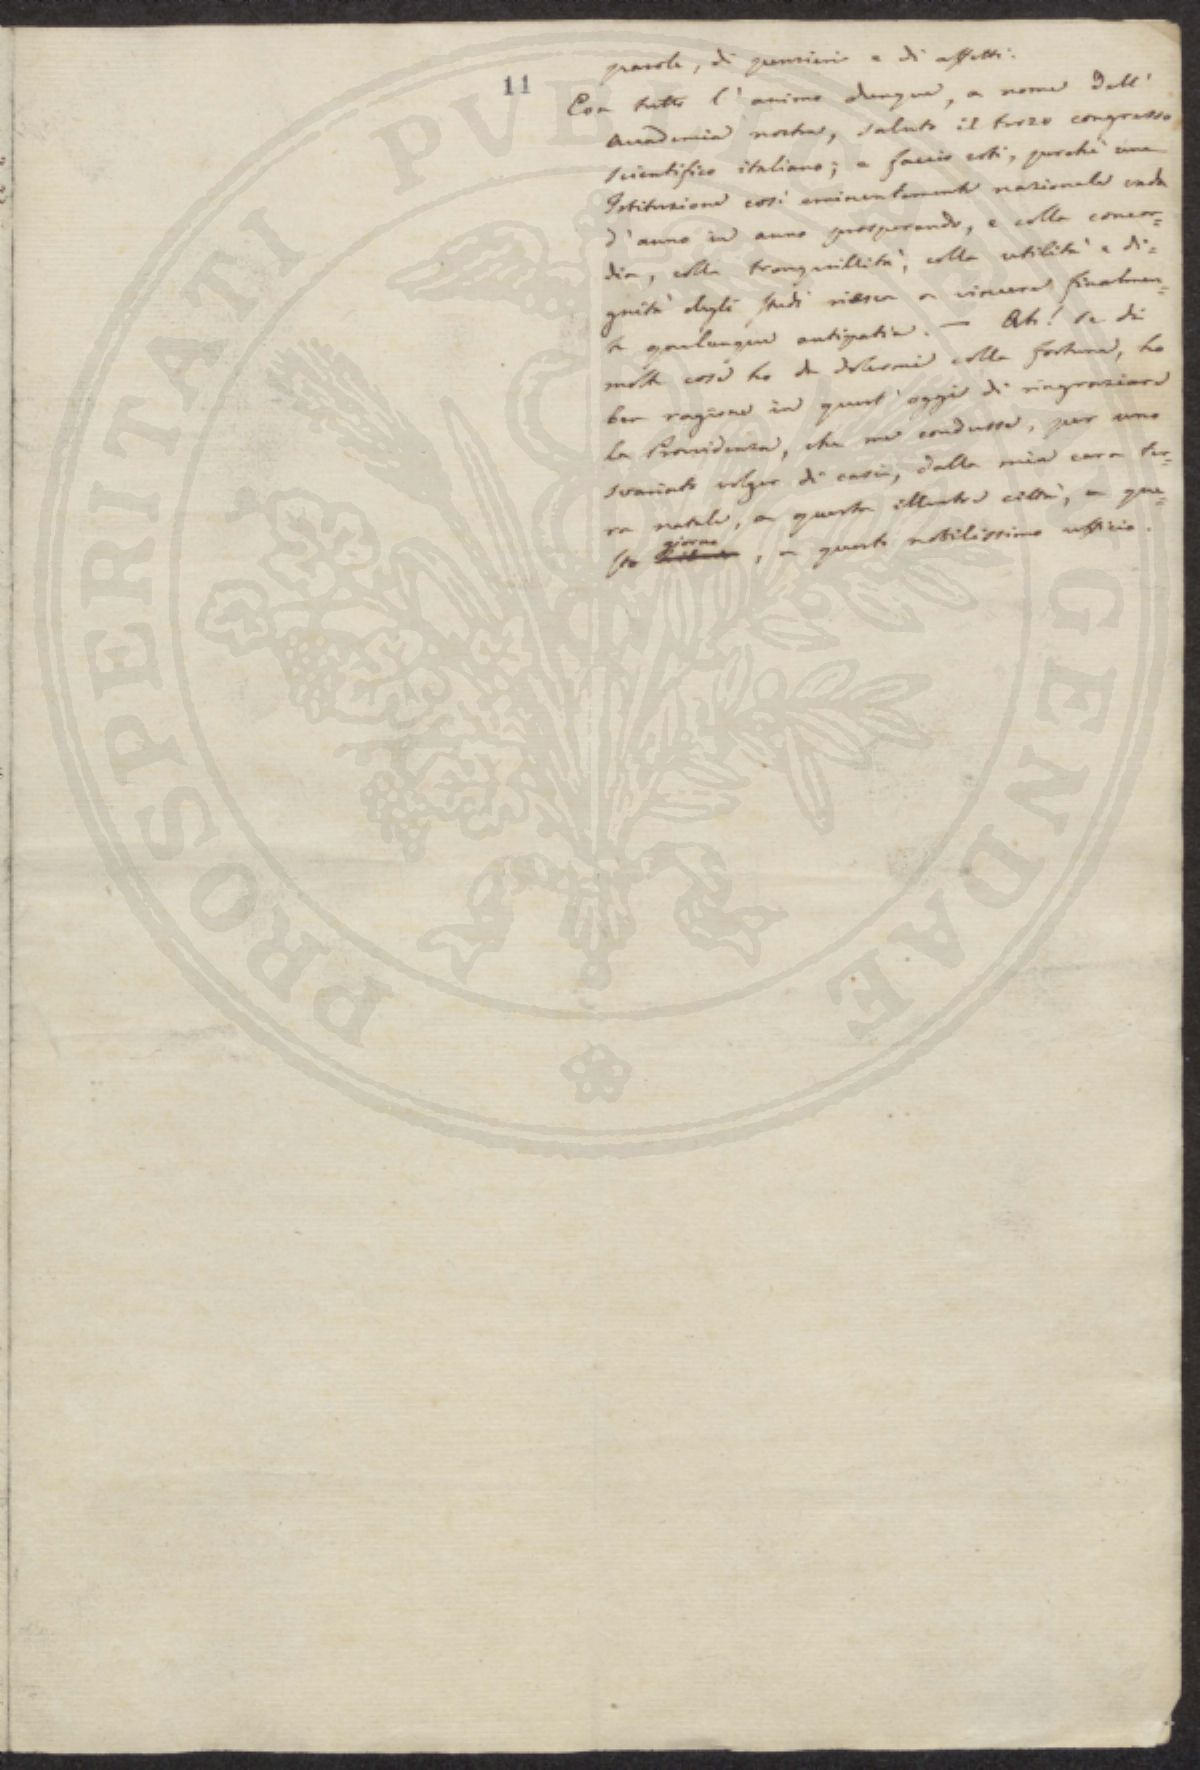 11
parole, di pensieri e di affetti.
Con tutto l'animo dunque, a nome dell'
Accademia nostra, saluto il terzo congresso
scientifico italiano; e faccio voti, perchè una
Istituzione così eminentemente nazionale vada
d'anno in anno prosperando, e colla concor=
dia, colla tranquillità, colla utilità e di=
gnità degli studi riesca a vincere finalmen=
te qualunque antipatia. — Ah! se di
molte cose ho da dolermi colla fortuna, ho
ben ragione in quest'oggi di ringraziare
la Providenza, che me condusse, per uno
svariato volger di casi, dalla mia cara ter=
ra natale, a questa illustre città, a que=
giorno
sto , a questo nobilissimo ufficio.
PROSPERITATI PVBLICAE AVGENDAE